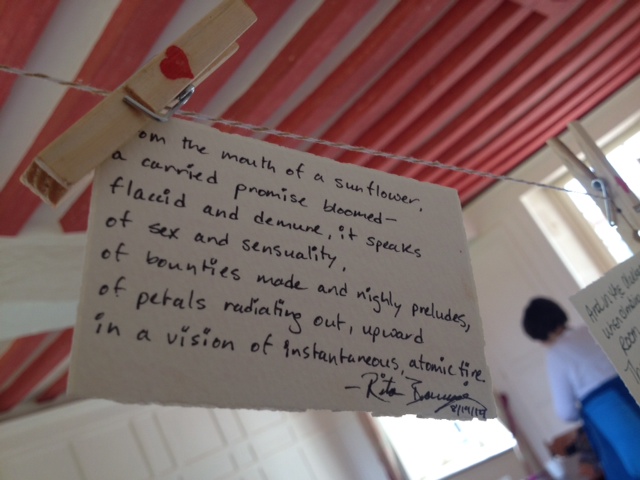 om the mouth of a sunflower,
a carried promise bloomed—
flaccid and demure, it speaks
of sex and sensuality,
of bounties made and nighly preludes,
of petals radiating out, upward
in a vision of instantaneous, atomic fire
—Rita
And in the
when